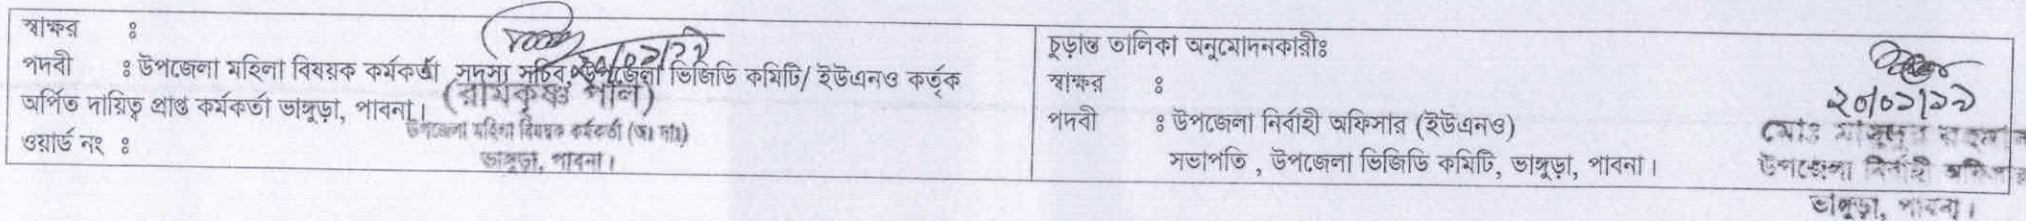 স্বাক্ষর ঃ
পদবী ঃ উপজেলা মহিলা বিষয়ক কর্মকর্তা সদস্য সচিব, উপজেলা ভিজিডি কমিটি/ ইউএনও কর্তৃক
অর্পিত দায়িত্ব প্রাপ্ত কর্মকর্তা ভাঙ্গুড়া, পাবনা।
(রামকৃষ্ণ পাল)
উপজেলা মহিলা বিষয়ক কর্মকর্তা (অঃ দাঃ)
ভাঙ্গুড়া, পাবনা।
ওয়ার্ড নং ঃ
চুড়ান্ত তালিকা অনুমোদনকারীঃ
স্বাক্ষর ঃ
পদবী ঃ উপজেলা নির্বাহী অফিসার (ইউএনও)
সভাপতি , উপজেলা ভিজিডি কমিটি, ভাঙ্গুড়া, পাবনা।
২০/০১/১১
মোঃ
উপজেলা নির্বাহী অফিসার
ভাঙ্গুড়া, পাবনা।